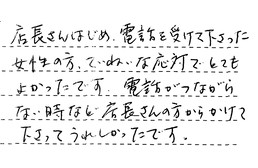 店長さんはじめ、電話を受けて下さった
女性の方、ていねいな応対でとても
よかったです。電話がつながら
ない時など店長さんの方からかけて
下さってうれしかったです。